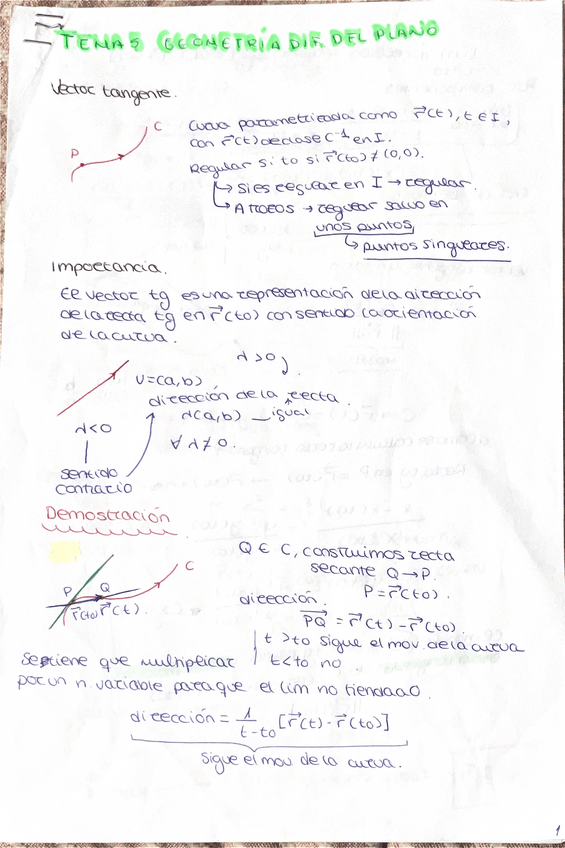 TEMA 5 GEOMETRÍA DIF. DEL PLANO
Vector tangente.
C
P
Curva parametrizada como r⃗(t), t ∈ I,
con r⃗(t) de clase C⁻¹ en I.
Regular si to si r⃗(to) ≠ (0,0).
↳ si es regular en I → regular.
↳ A trozos → regular salvo en
unos puntos
↳ puntos singulares.
Importancia.
El vector tg es una representación de la dirección
de la recta tg en r⃗(to) con sentido la orientación
de la curva.
λ > 0
U=(a,b)
dirección de la recta.
λ(a,b) _ igual
λ<0
∀ λ ≠ 0.
sentido
contrario
Demostración
Q ∈ C, construimos recta
secante Q→P.
P = r⃗(to).
C
P Q
r⃗(to) r⃗(t).
dirección.
PQ⃗ = r⃗(t) - r⃗(to)
t > to sigue el mov. de la curva
t < to no
Se tiene que multiplicar
por un n. variable para que el lim no tienda a 0.
dirección = 1/(t-to) [r⃗(t) - r⃗(to)]
sigue el mov de la curva.
1